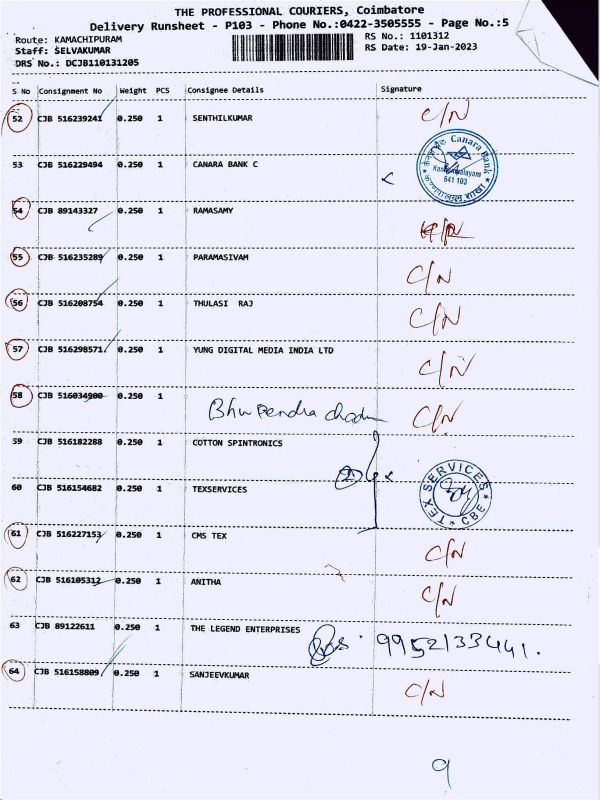 THE PROFESSIONAL COURIERS, Coimbatore
Delivery Runsheet - P103 - Phone No.:0422-3505555 - Page No.:5
Route: KAMACHIPURAM RS No.: 1101312
Staff: SELVAKUMAR RS Date: 19-Jan-2023
DRS No.: DCJB110131205
S No Consignment No Weight PCS Consignee Details Signature
52 CJB 516239241 0.250 1 SENTHILKUMAR C/N
53 CJB 516229494 0.250 1 CANARA BANK C
Canara Bank
641 103
54 CJB 89143327 0.250 1 RAMASAMY
55 CJB 516235289 0.250 1 PARAMASIVAM C/N
56 CJB 516208754 0.250 1 THULASI RAJ C/N
57 CJB 516298571 0.250 1 YUNG DIGITAL MEDIA INDIA LTD C/N
58 CJB 516034900 0.250 1 C/N
59 CJB 516182288 0.250 1 COTTON SPINTRONICS
60 CJB 516154682 0.250 1 TEXSERVICES
TEX SERVICES
CBE
61 CJB 516227153 0.250 1 CMS TEX C/N
62 CJB 516105312 0.250 1 ANITHA C/N
63 CJB 89122611 0.250 1 THE LEGEND ENTERPRISES 9952133441.
64 CJB 516158809 0.250 1 SANJEEVKUMAR C/N
9